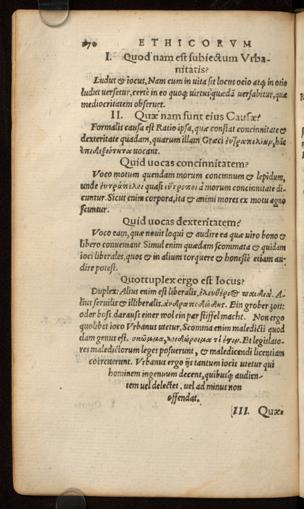 270 ETHICORVM
I. Quod nam est subiectum Vrba-
nitatis?
Ludus & iocus, Nam cum in vita sit locus ocio atq; in ocio
ludus versetur, certè in eo quoq; virtus quædã versabitur, quæ
mediocritatem obseruet.
II. Quæ nam sunt eius Causæ?
Formalis causa est Ratio ipsa, quæ constat concinnitate &
dexteritate quadam, quarum illam Græci ἐυτραπελίαν, hãc
ἐπιδεξιότητα vocant.
Quid uocas concinnitatem?
Voco motum quendam morum concinnum & lepidum,
vnde ἐυτράπελοι quasi εὔτροποι à morum concinnitate di-
cuntur. Sicut enim corpora, ita & animi mores ex motu agno
scuntur.
Quid uocas dexteritatem?
Voco eam, quæ neuit loqui & audire ea quæ uiro bono &
libero conueniant. Simul enim quædam scommata & quidam
ioci liberales, quos & in alium torquere & honestè etiam au-
dire potest.
Quottuplex ergo est Iocus?
Duplex: Alius enim est liberalis, ἐλευθέρι⊕ παιδεία. A-
lius seruilis & illiberalis. ἀνδραποδώδης. Ein grober zott:
oder boß darauff einer wol ein par stiffel macht. Non ergo
quolibet ioco Vrbanus utetur. Scomma enim maledicti quod
dam genus est. σκῶμμα, λοιδόρημα τί ἐστιν. Et legislato-
res maledictorum leges posuerunt, & maledicendi licentiam
coërcuerunt. Vrbanus ergo ijs tantum iocis utetur qui
hominem ingenuum decent, quibusq; audien-
tem uel delectet, uel ad minus non
offendat.
III. Quæ